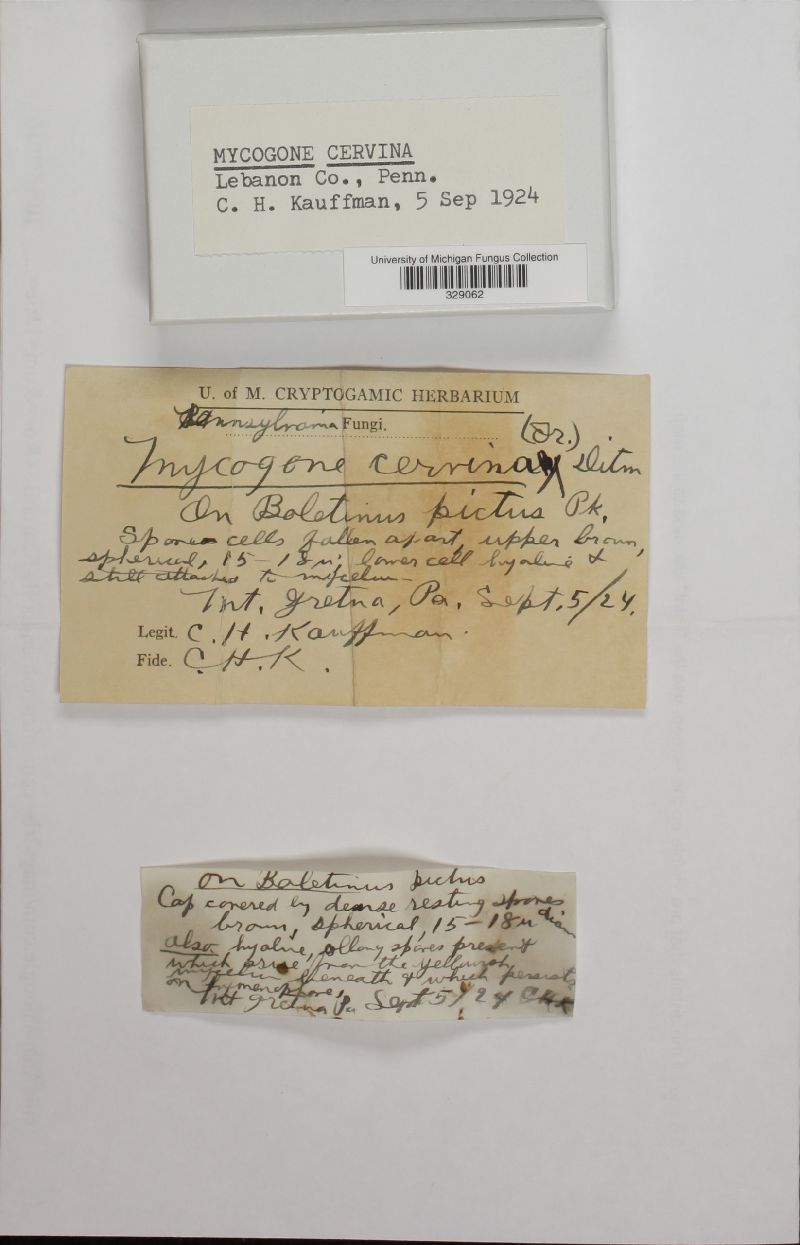 MYCOGONE CERVINA
Lebanon Co., Penn.
C. H. Kauffman, 5 Sep 1924
University of Michigan Fungus Collection
329062
U. of M. CRYPTOGAMIC HERBARIUM
Pennsylvania Fungi.
(Fr.)
Mycogone cervina Ditm
On Boletinus pictus Pk.
Spore cells fallen apart, upper brown,
spherical, 15-18 µ; lower cell hyaline &
still attached to mycelium
Mt. Gretna, Pa. Sept. 5/24.
Legit. C. H. Kauffman.
Fide. C. H. K.
On Boletinus pictus
Cap covered by dense resting spores
brown, spherical, 15-18µ diam
also hyaline, oblong spores present
which arise from the yellowish
mycelium beneath & which persists
on hymenophore,
Mt Gretna Pa Sept 5/24 CHK